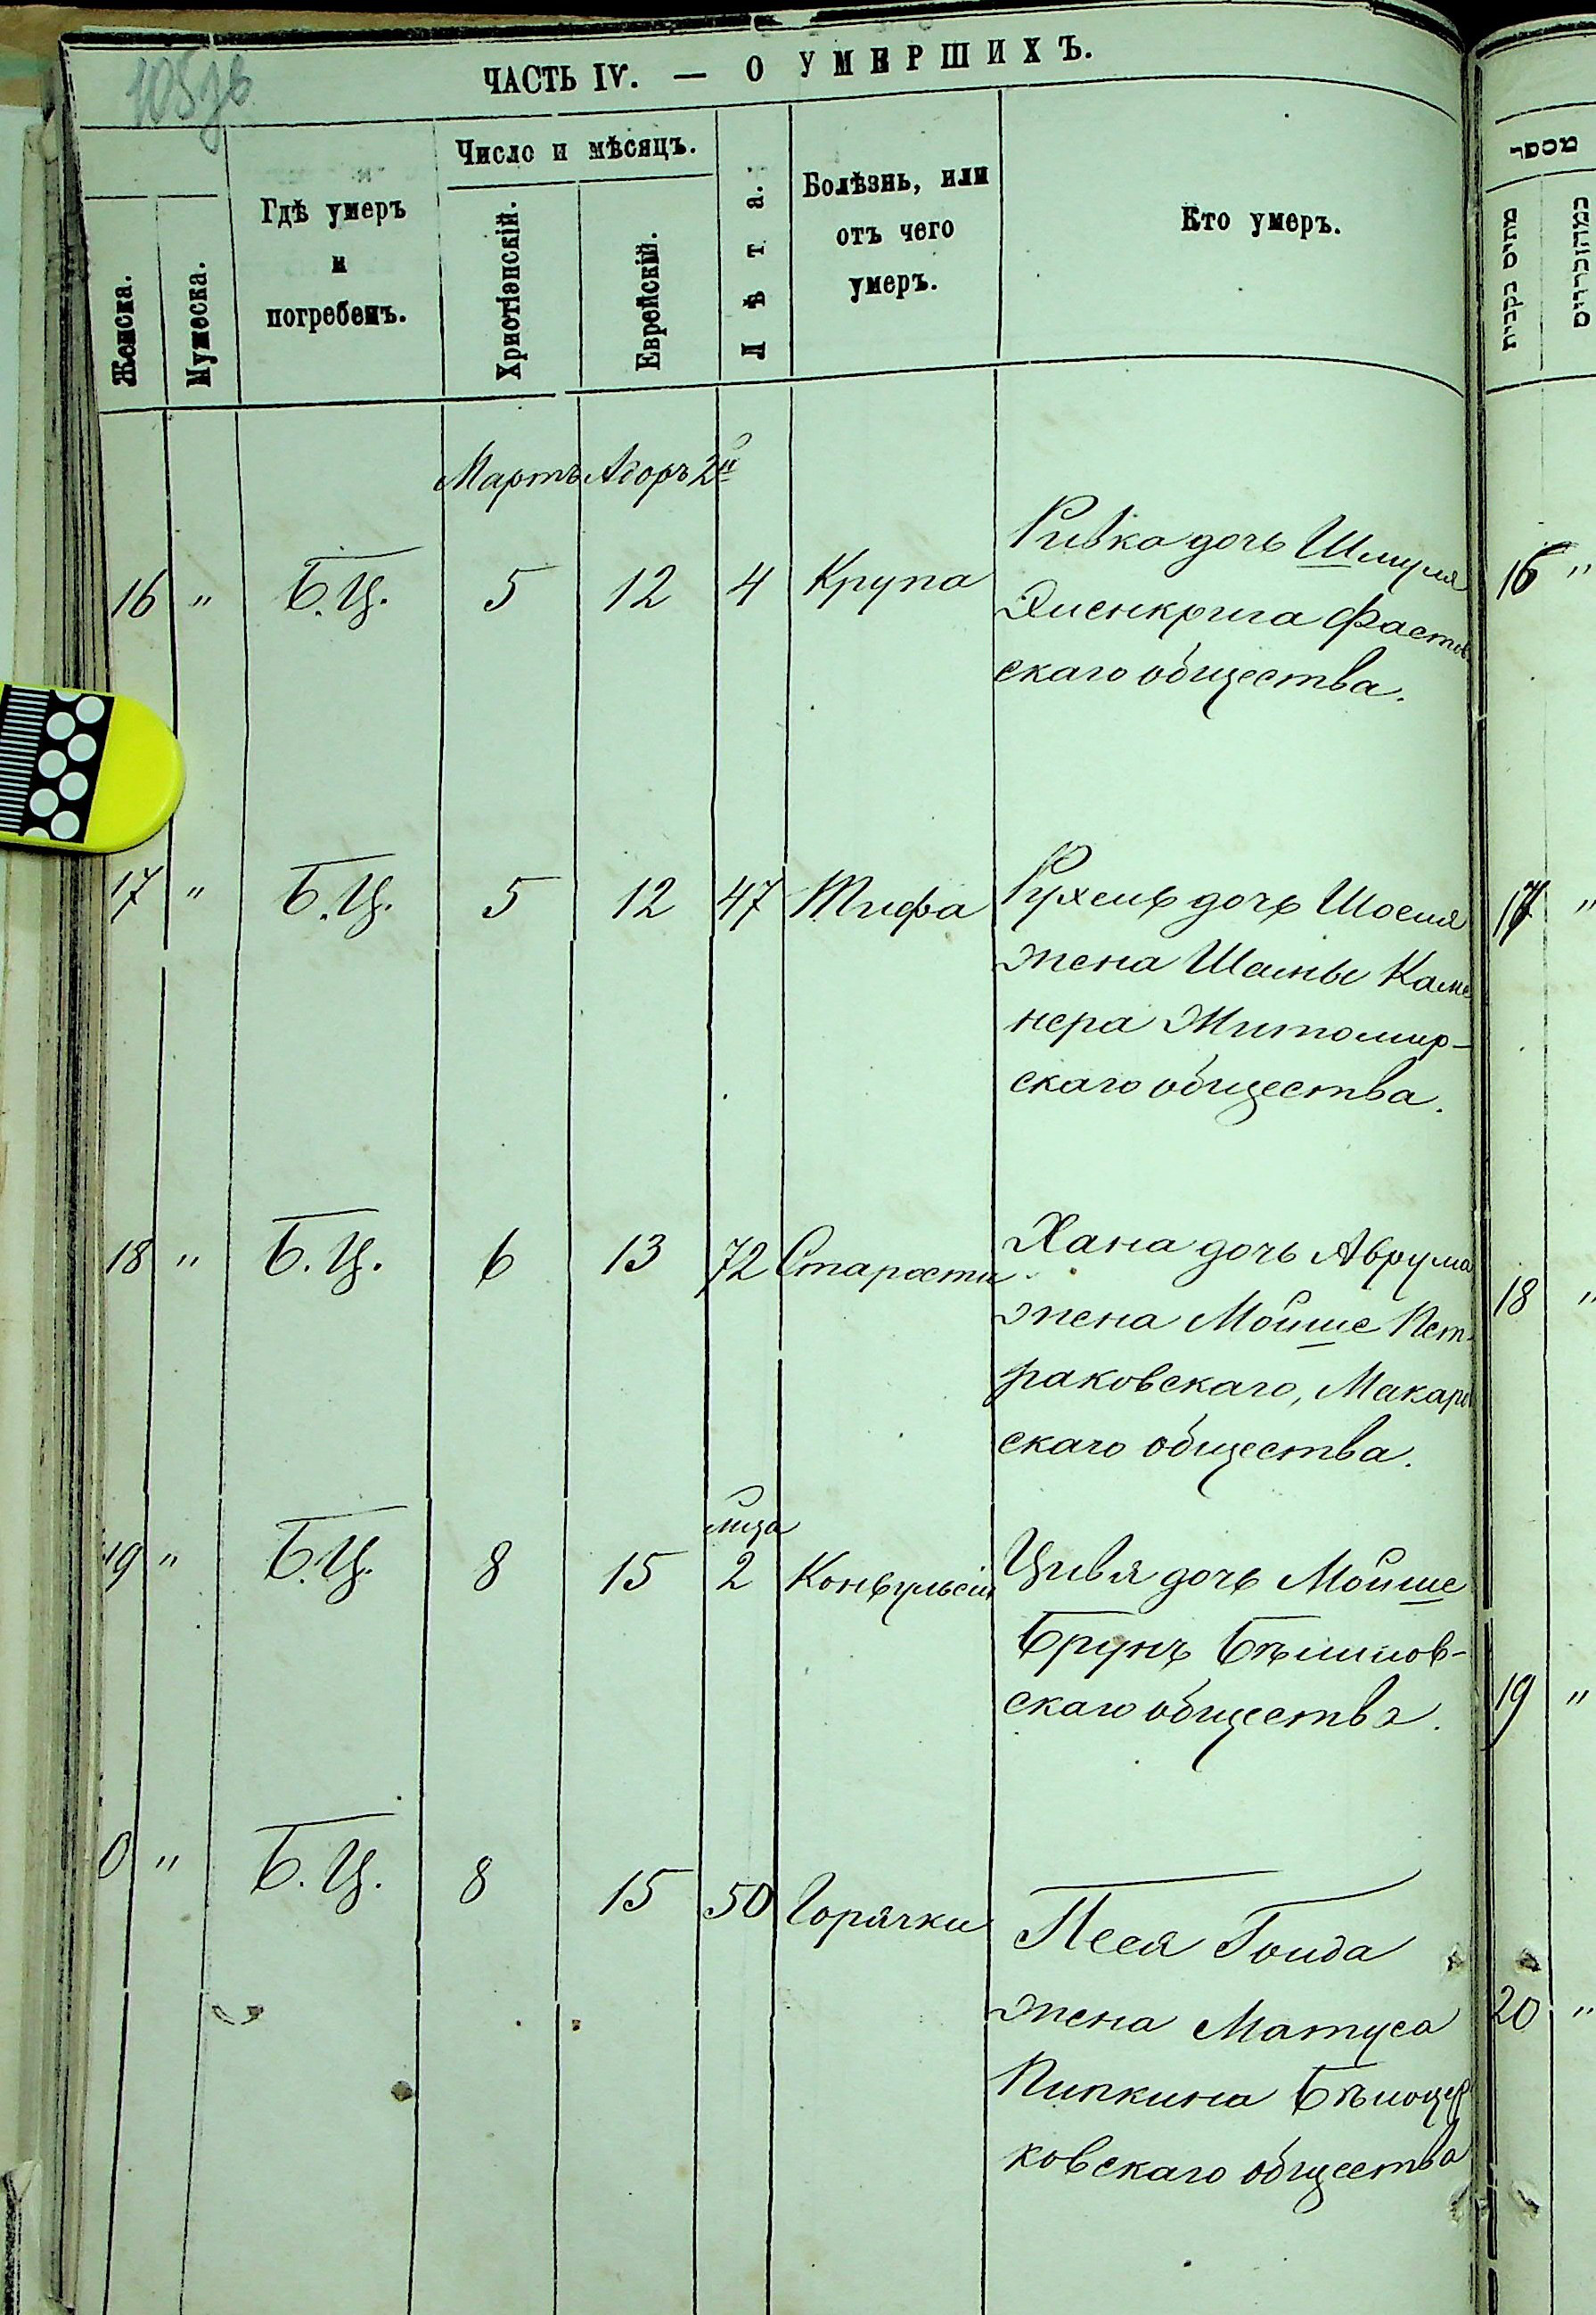 105 зв
ЧАСТЬ IV. — О УМЕРШИХЪ.
Женска.
Мужеска.
Гдѣ умеръ
и
погребенъ.
Число и мѣсяцъ.
Христіанскій.
Еврейскій.
Лѣта.
Болѣзнь, или
отъ чего
умеръ.
Кто умеръ.
מספר
מתים נקבות
Мартъ Адоръ 2й
16 " Б.Ц. 5 12 4 Крупа
Ривка дочь Шмуля
Фастов
скаго общества.
16 "
17 " Б.Ц. 5 12 47 Тифа
Рухель дочь Иосия
жена Шаины Каме
нера Житомир-
скаго общества.
17 "
18 " Б.Ц. 6 13 72 Старости
Хана дочь Аврума
жена Мойше Пет-
раковскаго, Макаро
скаго общества.
18 "
19 " Б.Ц. 8 15 мца 2 Конвульсіи
Цивя дочь Мойше
Брунъ
скаго общества.
19 "
0 " Б.Ц. 8 15 50 Горячки
Песя Гоида
жена Матуса
Пипкина Бѣлоцер
ковскаго общества
20 "